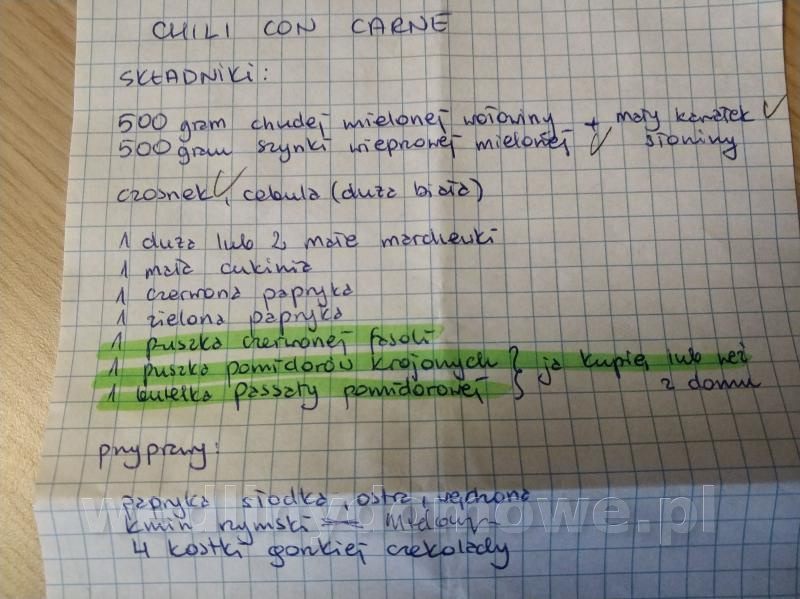 CHILI CON CARNE
SKŁADNIKI:
500 gram chudej mielonej wołowiny + mały kawałek
500 gram szynki wieprzowej mielonej słoniny
czosnek, cebula (duża biała)
1 duża lub 2 małe marchewki
1 mała cukinia
1 czerwona papryka
1 zielona papryka
1 puszka czerwonej fasoli
1 puszka pomidorów krojonych } ja kupię lub
1 butelka passaty pomidorowej z domu
przyprawy:
papryka słodka, ostra, wędzona
kmin rzymski — mielony
4 kostki gorzkiej czekolady